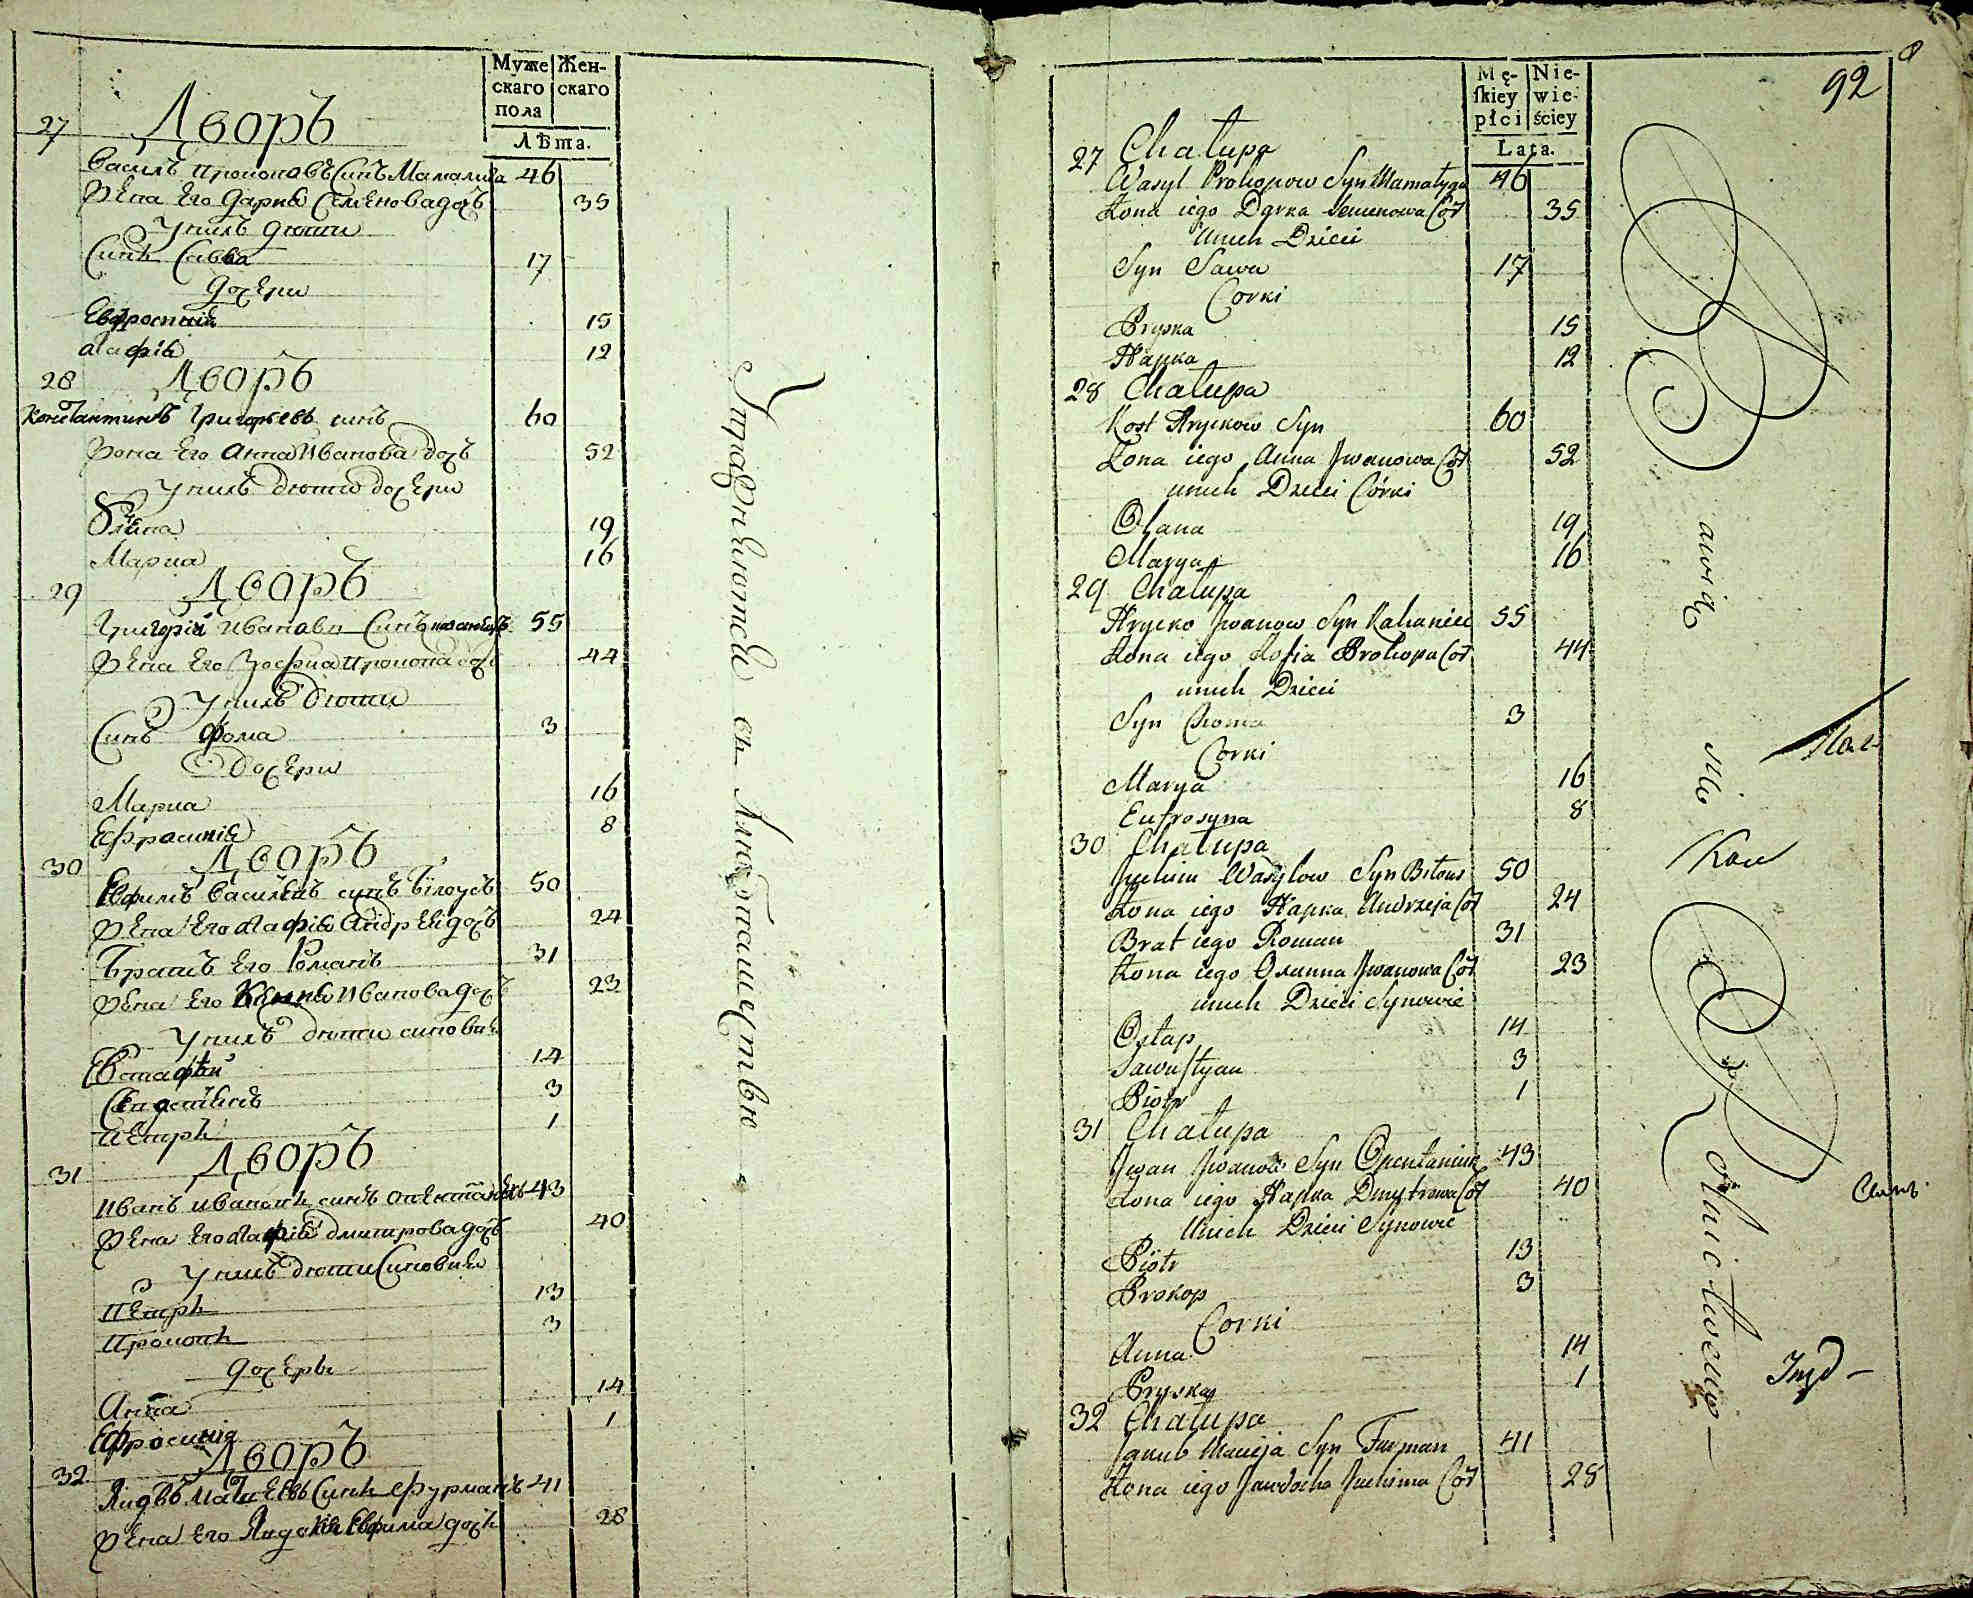 Муже
скаго
пола
Жен-
скаго
Лѣта.
27 Дворъ
Василъ Прокоповъ Синъ Мамалига 46
Жена Его Дария Семенова дочъ 35
У нихъ дети
Синъ Савва 17
дочери
Евфросиния 15
Агафия 12
28 Дворъ
Константинъ Григориевъ синъ 60
Жена Его Анна Иванова дочъ 52
У нихъ дети дочери
Олена 19
Мариа 16
29 Дворъ
Григорий Ивановъ Синъ 55
Жена Его Зофиа Прокопа дочъ 44
У нихъ дети
Синъ Фома 3
дочери
Мариа 16
Ефросиния 8
30 Дворъ
Евфимъ Василевъ синъ Билоусъ 50
Жена Его Агафия Андреи дочъ 24
Братъ Его Романъ 31
Жена Его Иванова дочъ 23
У нихъ дети синове
Евстафий 14
3
Петръ 1
31 Дворъ
Иванъ Ивановъ синъ 43
Жена Его Агафия Дмитрова дочъ 40
У нихъ дети Синове
Петръ 13
Прокопъ 3
дочери
Анна 14
Ефросиния 1
32 Дворъ
Яковъ Матиевъ Синъ Фурманъ 41
Жена Его Евфима дочъ 28
Управляющий
92
Mę-
skiey
płci
Nie-
wie-
ściey
Lata.
27 Chałupa
Wasyl Prokopow Syn Mamałyga 46
Żona iego Darka Semenowa Cór 35
U nich Dzieci
Syn Sawa 17
Corki
Pryska 15
Hapka 12
28 Chałupa
Kost Hryckow Syn 60
Żona iego Anna Jwanowa Cór 52
u nich Dzieci Córki
Ołana 19
Marya 16
29 Chałupa
Hrycko Jwanow Syn Kahaniec 55
Żona iego Zofia Prokopa Cór 44
u nich Dzieci
Syn Choma 3
Corki
Marya 16
Eufrosyna 8
30 Chałupa
Juchim Wasylow Syn Biłous 50
Żona iego Hapka Andrzeja Cór 24
Brat iego Roman 31
Żona iego Oxanna Jwanowa Cór 23
u nich Dzieci Synowie
Ostap 14
Sawastyan 3
Piotr 1
31 Chałupa
Jwan Jwanow Syn Opentaniuk 43
Żona iego Hapka Dmytrowa Cór 40
U nich Dzieci Synowie
Piotr 13
Prokop 3
Corki
Anna 14
Pryska 1
32 Chałupa
Jakub Macieja Syn Furman 41
Żona iego Jawdocha Juchima Cór 28